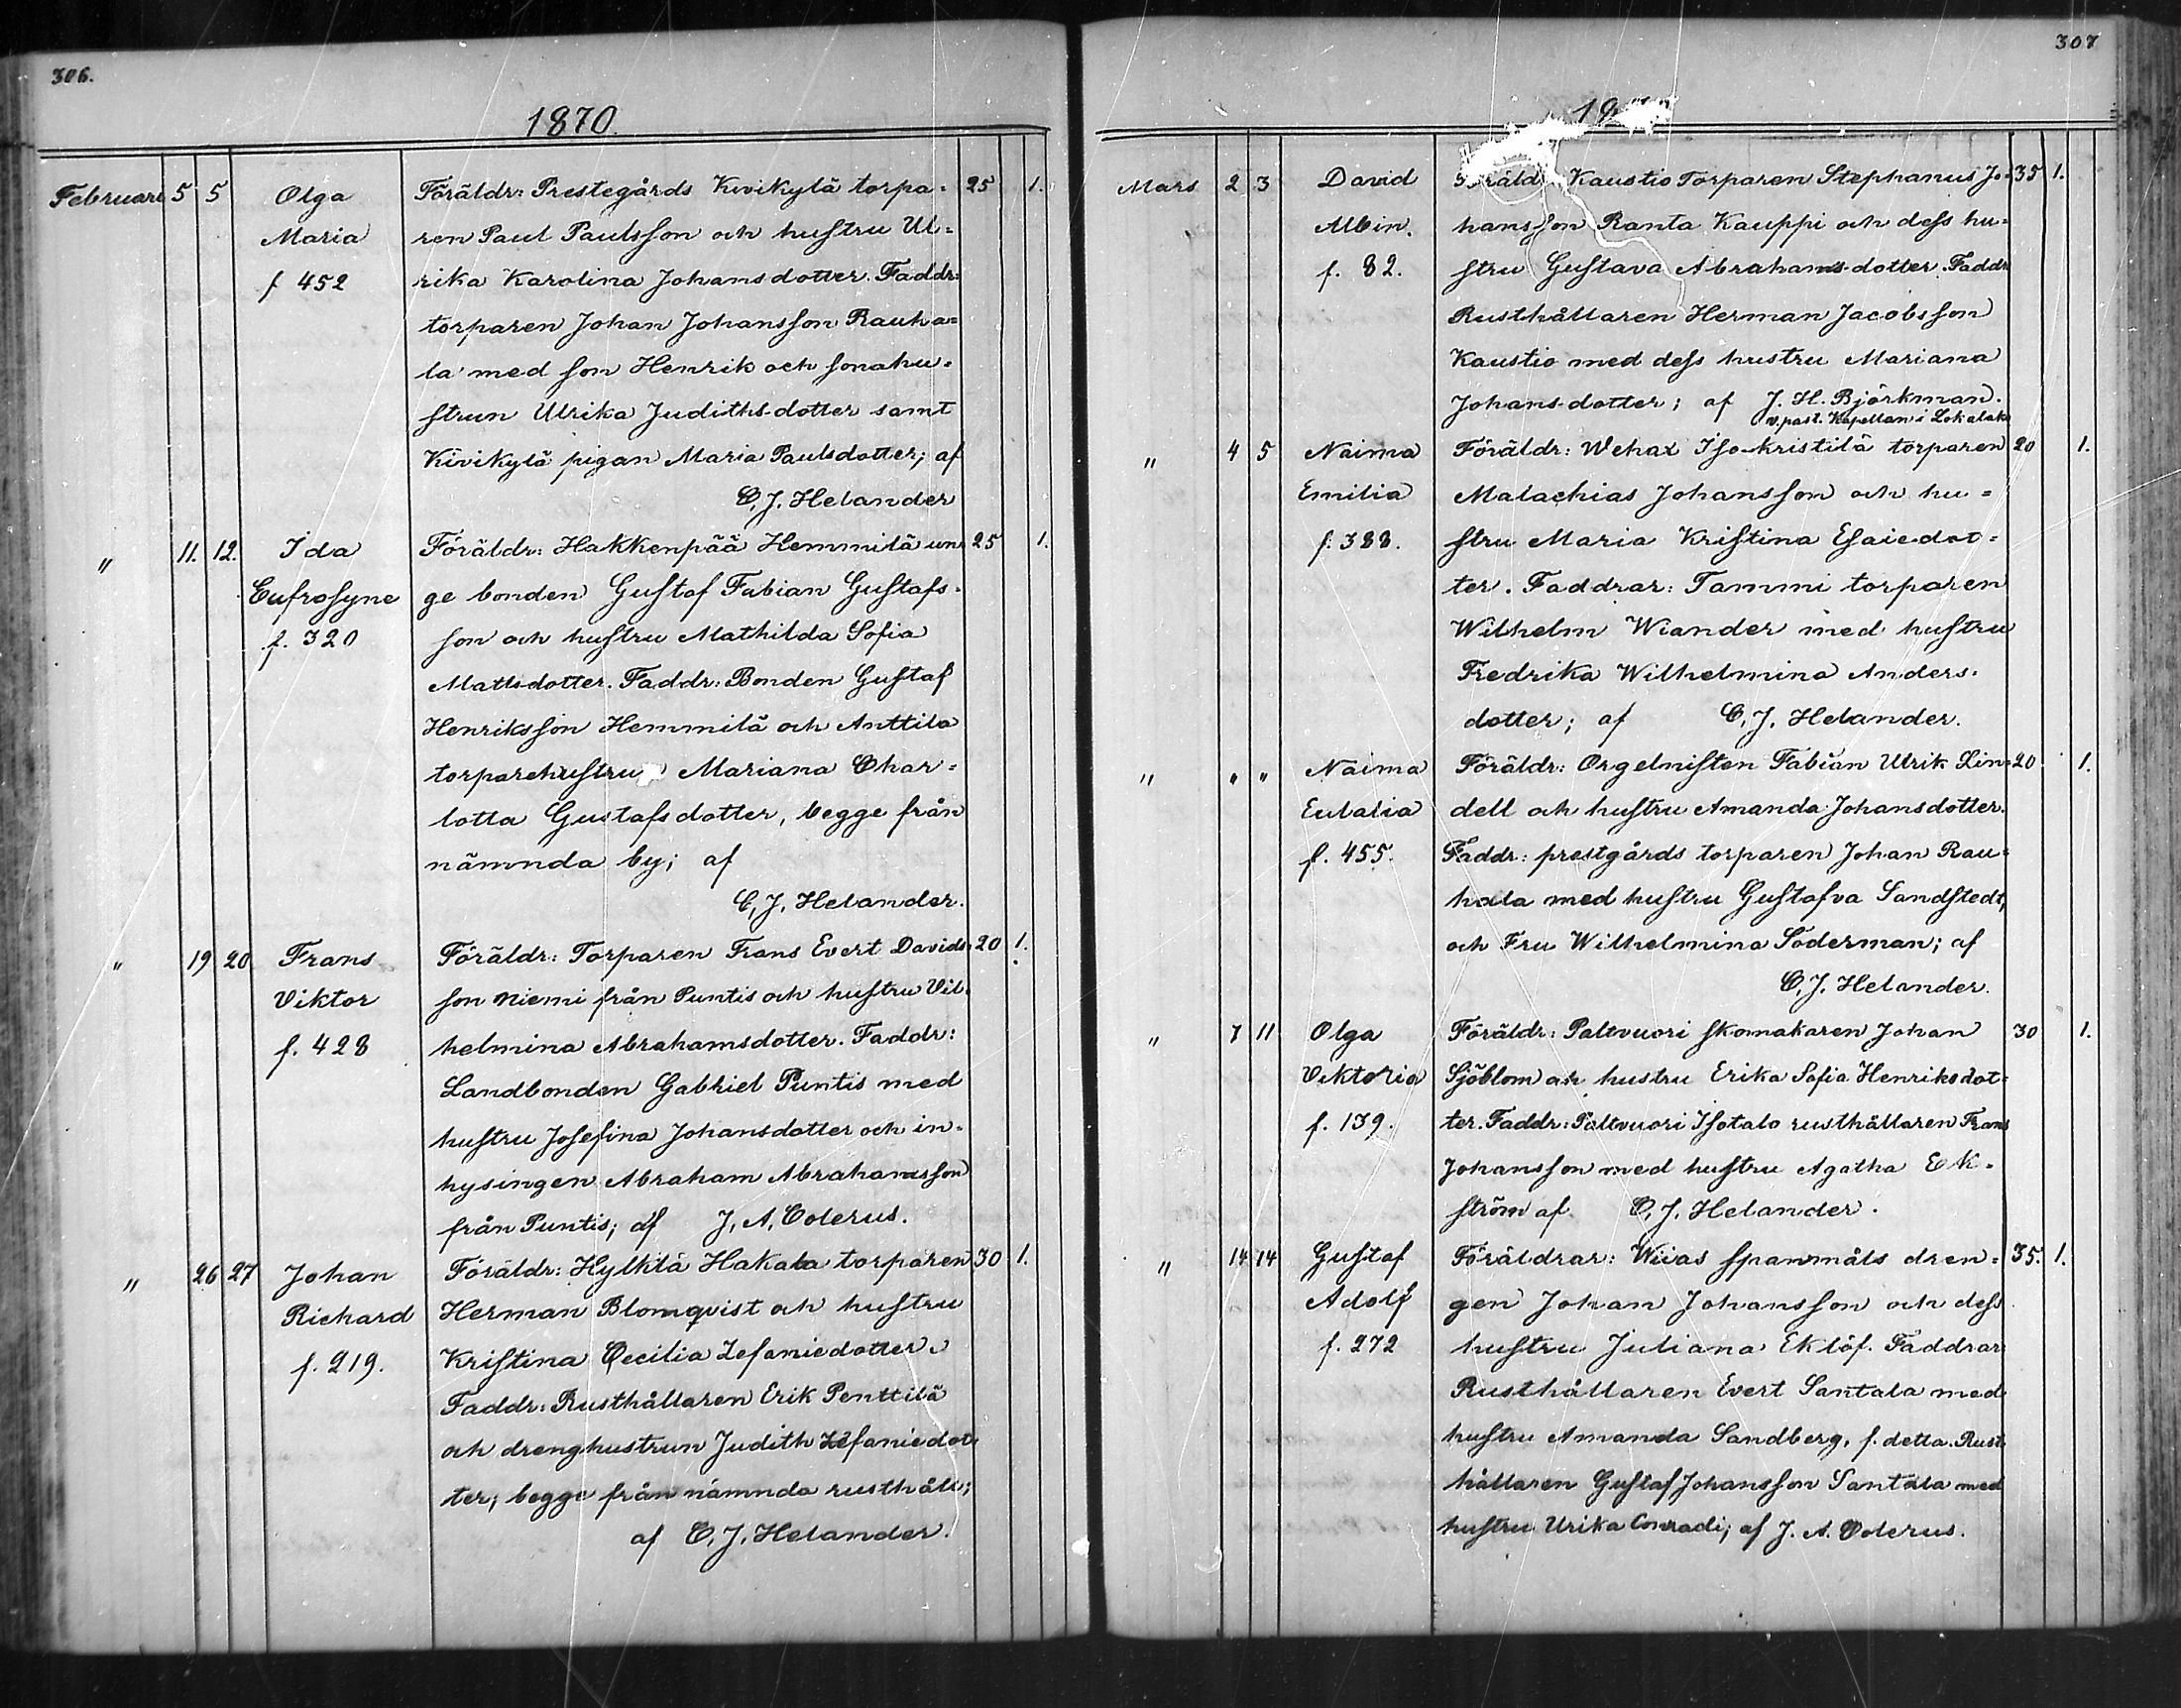 306.
1870.
Februari 5 5 Olga Föräldr: Prestegårds Kivikylä torpa= 25 1.
Maria ren Paul Paulsson och hustru Ul=
f 452 rika Karolina Johansdotter. Faddr:
torparen Johan Johansson Rauha=
la med son Henrik och sonahu=
strun Ulrika Judithsdotter samt
Kivikylä pigan Maria Paulsdotter; af
C. J. Helander
" 11. 12. Ida Föräldr: Hakkenpää Hemmilä un= 25 1.
Eufrosyne ge bonden Gustaf Fabian Gustafs=
f. 320 son och hustru Mathilda Sofia
Mattsdotter. Faddr: Bonden Gustaf
Henriksson Hemmilä och Anttila
torparehustru Mariana Char=
lotta Gustafsdotter, begge från
nämnda by; af
C. J. Helander.
" 19 20 Frans Föräldr: Torparen Frans Evert Davids= 20 1.
Viktor son Niemi från Puntis och hustru Vil=
f. 428 helmina Abrahamsdotter. Faddr:
Landbonden Gabriel Puntis med
hustru Josefina Johansdotter och in=
hysingen Abraham Abrahamsson
från Puntis; af J. A. Colerus.
" 26 27 Johan Föräldr: Hylkilä Hakala torparen 30 1.
Richard Herman Blomqvist och hustru
f. 219. Kristina Cecilia Zefaniedotter.
Faddr: Rusthållaren Erik Penttilä
och drenghustrun Judith Zefaniedot=
ter; begge från nämnda rusthåll;
af C. J. Helander.
307
Mars 2 3 David Kaustio Torparen Stephanus Jo= 35 1.
Albin. hansson Ranta Kauppi och dess hu=
f. 82. stru Gustava Abrahamsdotter. Faddr
Rusthållaren Herman Jacobsson
Kaustio med dess hustru Mariana
Johansdotter; af J. H. Björkman.
v. past. Kapellan i Lokalaks
" 4 5 Naima Föräldr: Wehax Iso-kristilä torparen 20 1.
Emilia Malachias Johansson och hu=
f. 388. stru Maria Kristina Esaiedot=
ter. Faddrar: Tammi torparen
Wilhelm Wiander med hustru
Fredrika Wilhelmina Anders=
dotter; af C. J. Helander.
" " " Naima Föräldr: Orgelnisten Fabian Ulrik Lin= 20 1.
Eulalia dell och hustru Amanda Johansdotter.
f. 455. Faddr: prestgårds torparen Johan Rau=
hala med hustru Gustafva Sandstedt,
och Fru Wilhelmina Söderman; af
C. J. Helander.
" 7 11 Olga Föräldr: Paltvuori skomakaren Johan 30 1.
Viktoria Sjöblom och hustru Erika Sofia Henriksdot=
f. 139. ter. Faddr: Paltvuori Isotalo rusthållaren Frans
Johansson med hustru Agatha Ek=
ström af C. J. Helander.
" 14 14 Gustaf Föräldrar: Wiias spanmåls dren= 35. 1.
Adolf gen Johan Johansson och dess
f. 272 hustru Juliana Eklöf. Faddrar
Rusthållaren Evert Santala med
hustru Amanda Sandberg, f. detta Rust
hållaren Gustaf Johansson Santala med
hustru Urika Conradi; af J. A. Colerus.